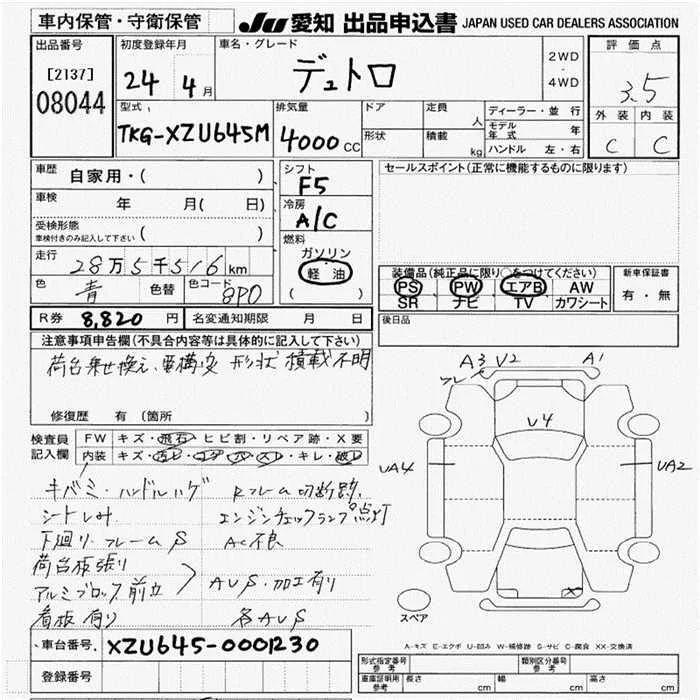 車内保管・守衛保管
JU 愛知 出品申込書 JAPAN USED CAR DEALERS ASSOCIATION
出品番号
[2137]
08044
初度登録年月
24 4月
車名・グレード
デュトロ
2WD
・
4WD
評価点
3.5
外装 内装
C C
型式
TKG-XZU645M
排気量
4000 CC
ドア
形状
定員
人
積載
kg
ディーラー・並行
モデル年式 年
ハンドル 左・右
車歴
自家用・( )
車検
年 月( 日)
受検形態
車検付きのみ記入して下さい ( )
走行
28万5千516km
色
青
色替
色コード
8P0
シフト
F5
冷房
A/C
燃料
ガソリン
軽・油
( )
セールスポイント(正常に機能するものに限ります)
装備品(純正品に限り○をつけてください)
PS PW エアB AW
SR ナビ TV カワシート
新車保証書
有・無
後日品
R券 8,820 円 名変通知期限 月 日
注意事項申告欄(不具合内容等は具体的に記入して下さい)
荷台乗せ換え、要構変 形状 積載不明
修復歴 有 (箇所 )
検査員
記入欄
FW キズ・飛石・ヒビ割・リペア跡・X要
内装 キズ・汚レ・コゲ・穴・スレ・キレ・破レ
キバミ・ハンドルハゲ Rフレーム切断跡
シート しみ エンジンチェックランプ点灯
下廻り・フレーム S AC不良
荷台板張り
アルミブロック前立 AUS・加工有り
看板有り 各AUS
A3 V2 A1
V4
UA4
UA2
X
スペア
A-キズ E-エクボ U-凹み W-補修跡 S-サビ C-腐食 XX-交換済
車台番号 XZU645-0001230
登録番号
形式指定番号
参考
類別区分番号
参考
車庫証明用
参考
長さ cm 幅 cm 高さ cm